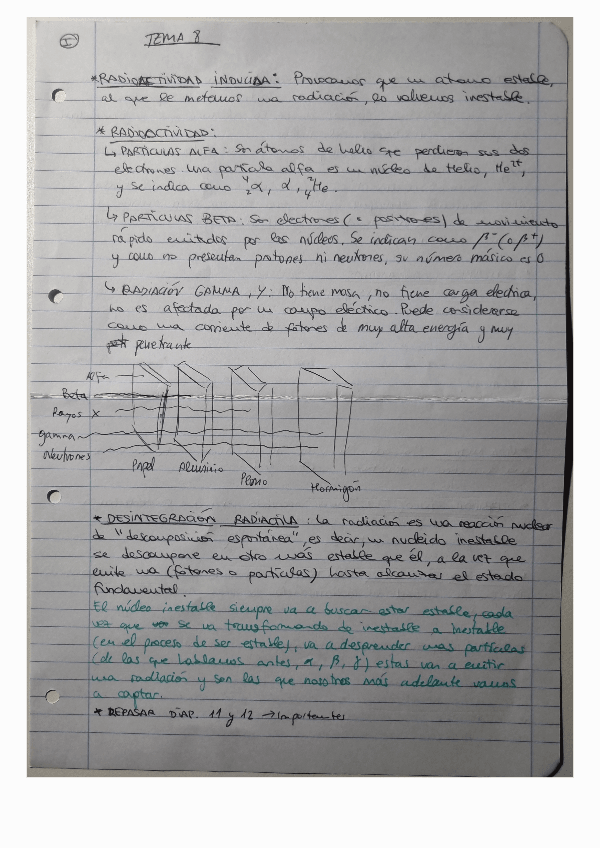 I
TEMA 8
* RADIOACTIVIDAD INDUCIDA: Provocamos que un átomo estable,
al que le metemos una radiación, lo volvemos inestable.
* RADIOACTIVIDAD:
↳ PARTICULAS ALFA: Son átomos de helio que perdieron sus dos
electrones una partícula alfa es un núcleo de Helio, He²⁺,
y se indica como ⁴₂α, α, ²₄He.
↳ PARTÍCULAS BETA: Son electrones (o positrones) de movimiento
rápido emitados por los núcleos. Se indican como β⁻ (o β⁺)
y como no presentan protones ni neutrones, su número másico es 0
↳ RADIACIÓN GAMMA, γ: No tiene masa, no tiene carga electrica,
no es afectada por un campo eléctrico. Puede considerarse
como una corriente de fotones de muy alta energía y muy
penetrante
Alfa
Beta
Rayos X
Gamma
Neutrones
Papel
Aluminio
Plomo
Hormigón
* DESINTEGRACIÓN RADIACTIVA: La radiación es una reacción nuclear
de "descomposición espontánea", es decir, un nucleido inestable
se descompone en otro más estable que él, a la vez que
emite una (fotones o partículas) hasta alcanzar el estado
fundamental.
El núcleo inestable siempre va a buscar estar estable, cada
vez que se va transformando de inestable a inestable
(en el proceso de ser estable), va a desprender unas partículas
(de las que hablamos antes, α, β, γ) estas van a emitir
una radiación y son las que nosotros más adelante vamos
a captar.
* REPASAR DIAP. 11 y 12 → Importantes